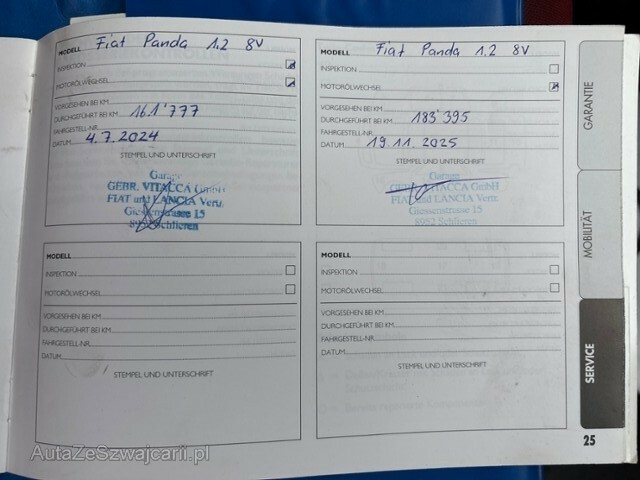 MODELL Fiat Panda 1.2 8V
INSPEKTION
MOTORÖLWECHSEL
VORGESEHEN BEI KM
DURCHGEFÜHRT BEI KM 161'777
FAHRGESTELL-NR.
DATUM 4.7.2024
STEMPEL UND UNTERSCHRIFT
Garage
GEBR. VITACCA GmbH
FIAT und LANCIA Vertr.
Giessenstrasse 15
8952 Schlieren
MODELL Fiat Panda 1.2 8V
INSPEKTION
MOTORÖLWECHSEL
VORGESEHEN BEI KM
DURCHGEFÜHRT BEI KM 183'395
FAHRGESTELL-NR.
DATUM 19.11.2025
STEMPEL UND UNTERSCHRIFT
Garage
GEBR. VITACCA GmbH
FIAT und LANCIA Vertr.
Giessenstrasse 15
8952 Schlieren
MODELL
INSPEKTION
MOTORÖLWECHSEL
VORGESEHEN BEI KM
DURCHGEFÜHRT BEI KM
FAHRGESTELL-NR.
DATUM
STEMPEL UND UNTERSCHRIFT
MODELL
INSPEKTION
MOTORÖLWECHSEL
VORGESEHEN BEI KM
DURCHGEFÜHRT BEI KM
FAHRGESTELL-NR.
DATUM
STEMPEL UND UNTERSCHRIFT
GARANTIE
MOBILITÄT
SERVICE
25
AutaZeSzwajcarii.pl